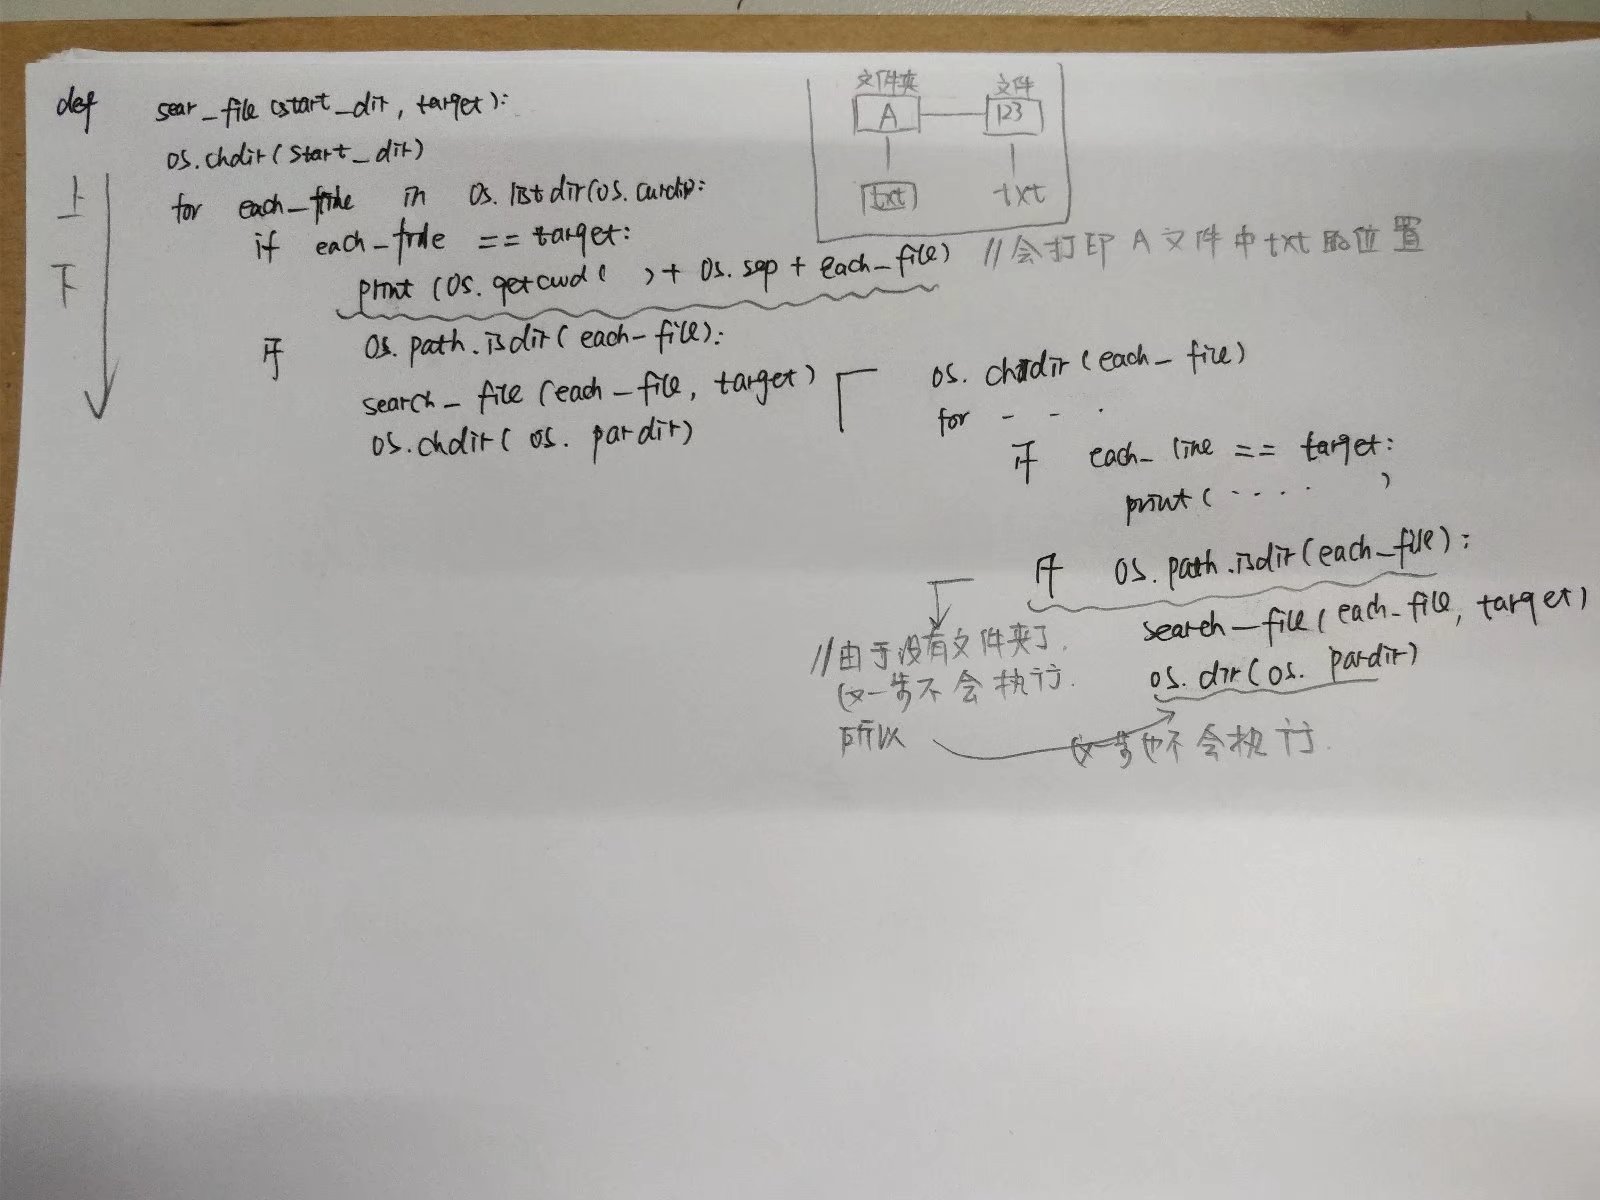 def sear_file (start_dir, target):
os.chdir(start_dir)
for each_file in os.listdir(os.curdir):
if each_file == target:
print (os.getcwd( ) + os.sep + each_file) //会打印 A 文件中txt的位置
if os.path.isdir(each_file):
search_file (each_file, target)
os.chdir( os. pardir)
上
下
文件夹 文件
A 123
txt txt
os. chdir(each_file)
for - - .
if each_line == target:
print( ..... )
if os.path.isdir(each_file):
search_file(each_file, target)
os. dir(os. pardir)
//由于没有文件夹了.
这一步不会执行.
所以 这一步也不会执行.